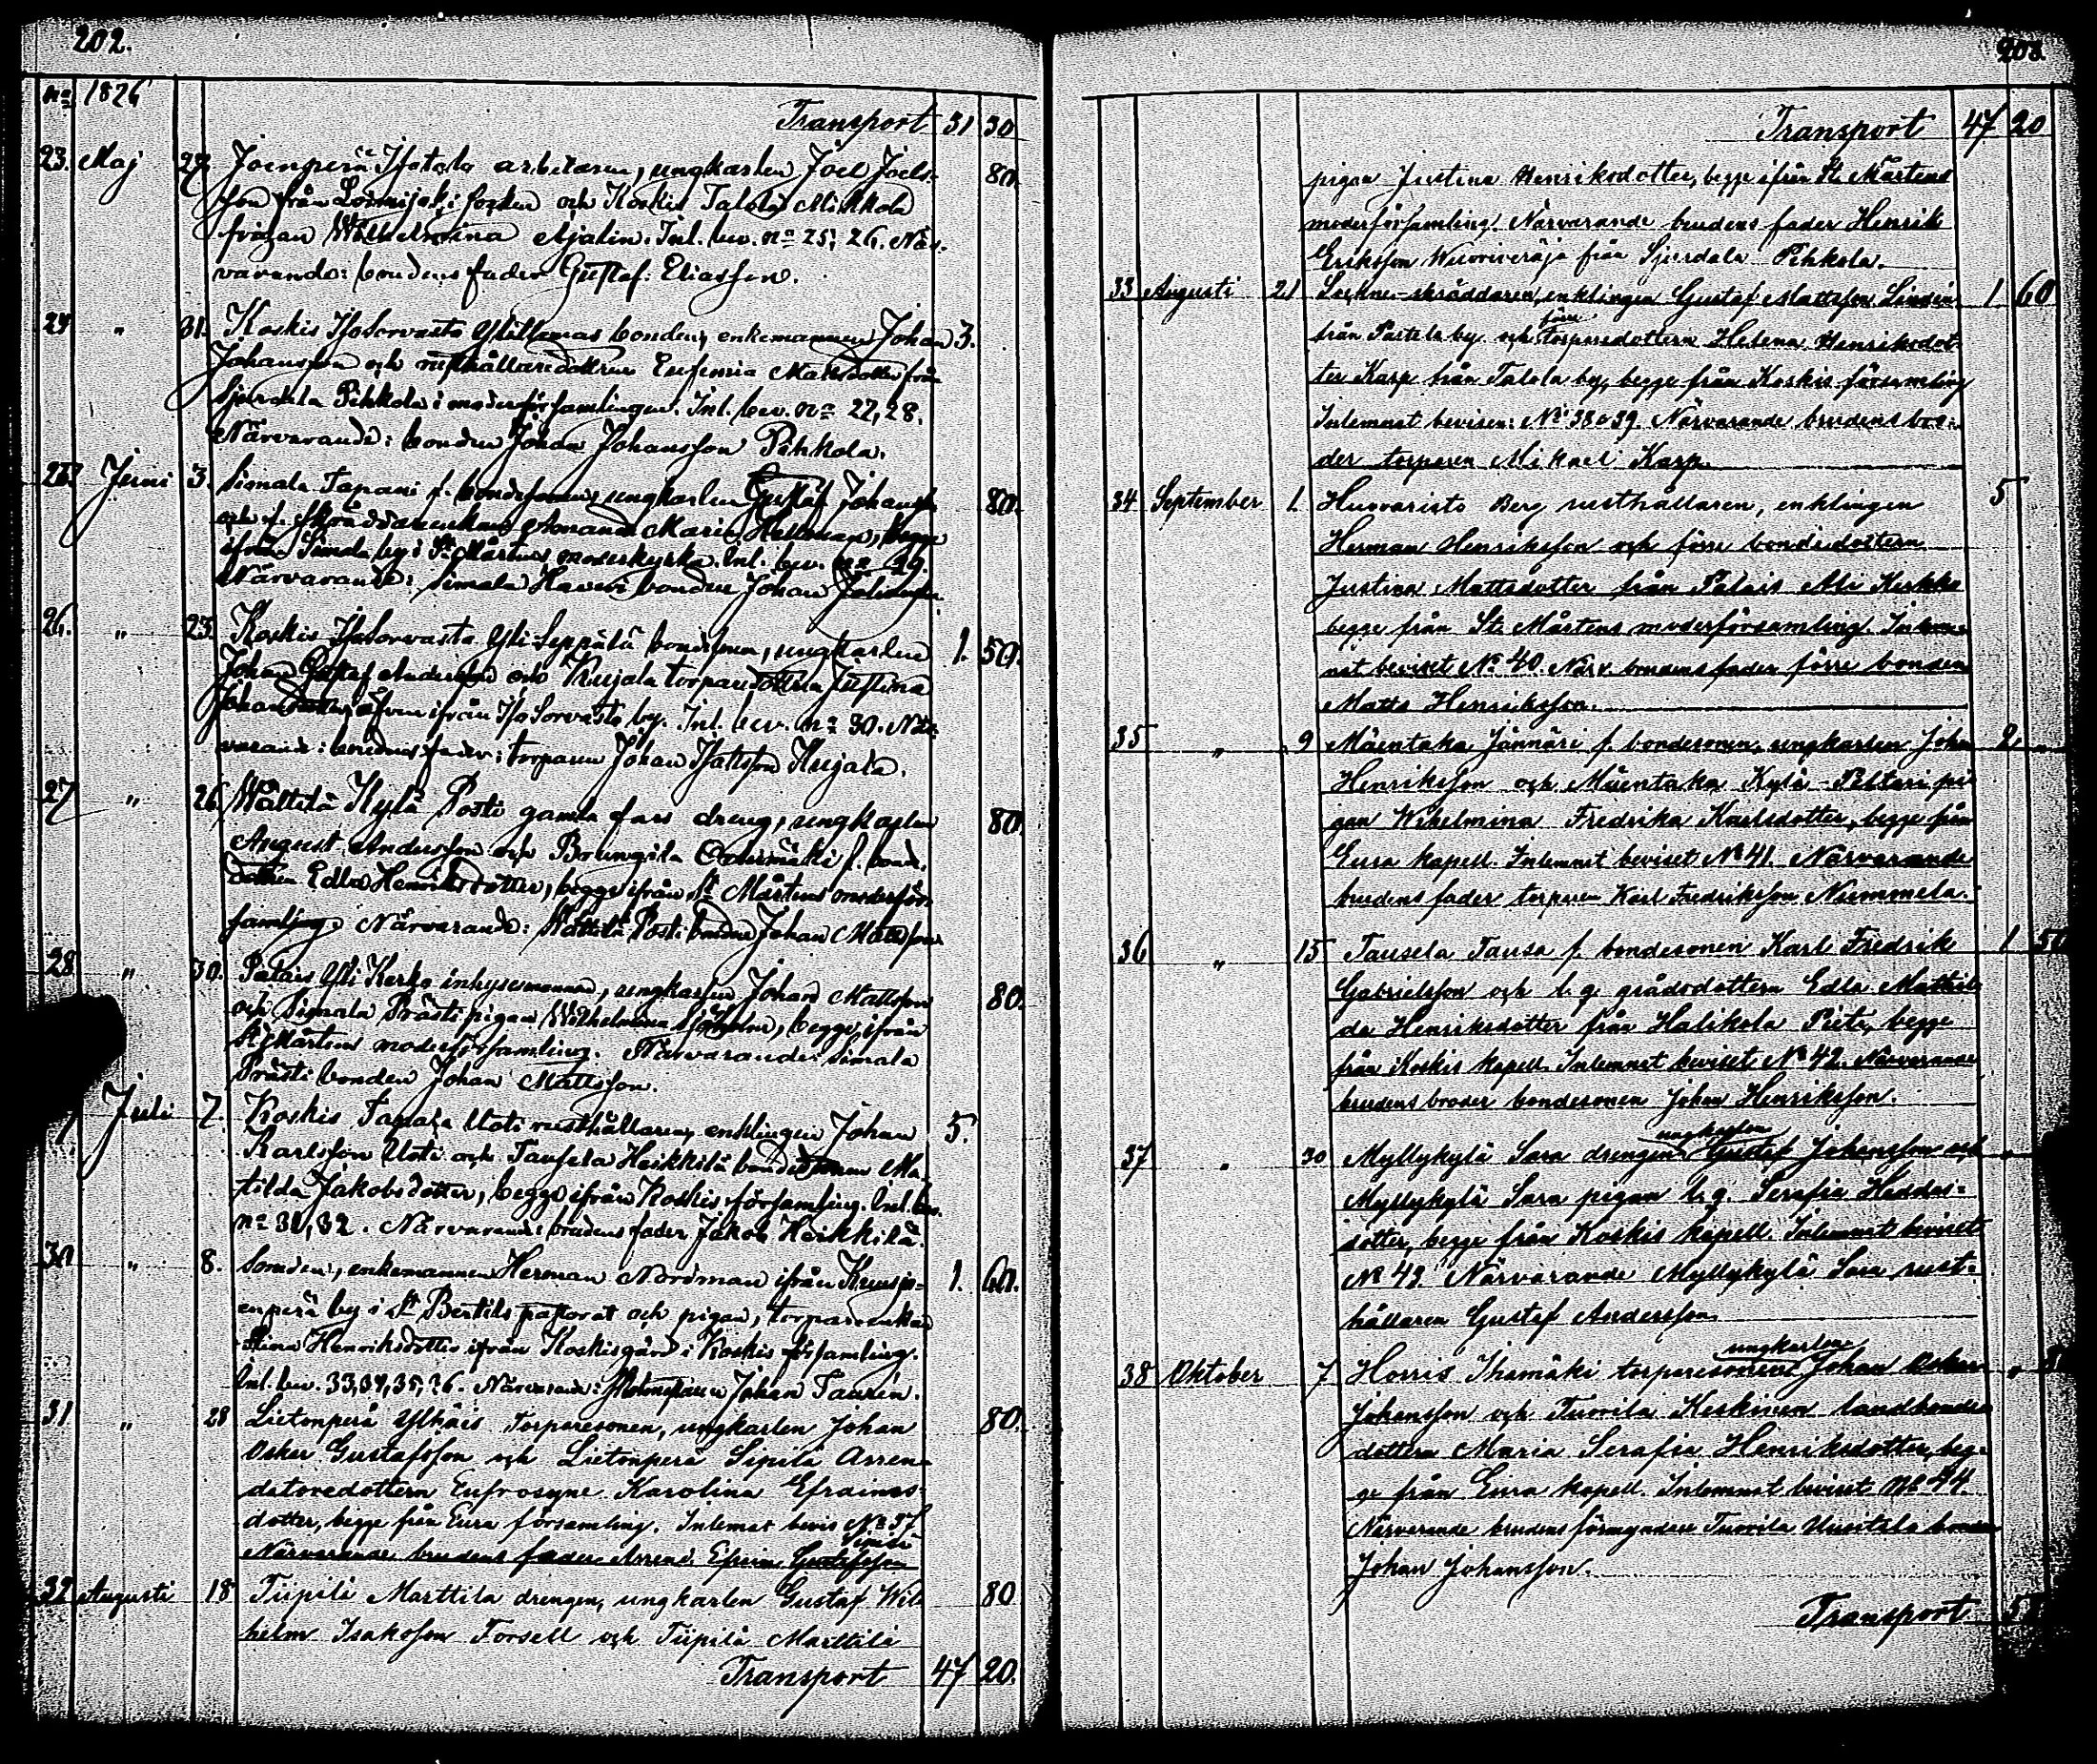 202.
No 1876
Transport 31 30
23. Maj 27. Joenperä Isotalo arbetaren, ungkarlen Joel Joels- 80.
son från Loimijoki socken och Koskis Talola Mikkola
pigan Wilhelmina Ajalin. Inl. bev. no 25, 26. När-
varande: brudens fader Gustaf Eliasson.
24 " 31. Koskis Isosorvasto Yli bonden, enkemannen Johan 3.
Johansson och rusthållaredottren Eufemia Mattsdotter från
Sjördala Pihkola i moderförsamlingen. Inl. bev. no 27, 28.
Närvarande: bonden Johan Johansson Pihkola.
25. Juni 3. Simala Tapani f. bondesonen, ungkarlen Gustaf Johansson 80.
och f. skräddareenkan Amanda Maria Hellman, begge
ifrån Simala by i St Mårtens moderkyrka. Inl. bev. no 29.
Närvarande: Simala Haveri bonden Johan
26. " 23. Koskis Isosorvasto Yli Seppälä bondesonen, ungkarlen 1. 50.
Johan Gustaf Andersson och Kujala torparedottren Justina
Johansdotter, äfven ifrån Isosorvasto by. Inl. bev. no 30. När-
varande: brudens fader: torparen Johan Mattsson Kujala.
27 " 26. Wättilä Kylä Posti gamla fars dreng, ungkarlen 80.
August Andersson och Prunkila f. bonde-
dottren Edla Henriksdotter, begge ifrån St Mårtens moderför-
samling. Närvarande: Wättilä Posti bonden Johan Mattsson.
28 " 30. Palais Yli Kerko inhysesmannen, ungkarlen Johan Mattsson 80.
och Simala Prästi pigan Wilhelmina begge ifrån
St Mårtens moderförsamling. Närvarande: Simala
Prästi bonden Johan Mattsson.
Juli 7. Koskis Tapala Uoti rusthållaren, enklingen Johan 5.
Karlsson Uoti och Tausela Heikkilä bondedottren Ma-
tilda Jakobsdotter, begge ifrån Koskis församling. Inl. bev.
no 31, 32. Närvarande: brudens fader Jakob Heikkilä.
30 " 8. Smeden, enkemannen Herman Nordman ifrån Kruusjo- 1. 60.
enperä by i St Bertils pastorat och pigan, torpareenkan
Stina Henriksdotter ifrån Koskisgård i Koskis församling.
Inl. bev. 33, 34, 35, 36. Närvarande: Johan Taurén.
31 " 28 Lietonperä Ylhäis Torparesonen, ungkarlen Johan 80.
Oskar Gustafsson och Lietonperä Sipilä Arren-
datoredottern Eufrosyne Karolina Efraims-
dotter, begge från Eura församling. Inlemnat bevis No 37
Närvarande brudens fader Arrend. Efraim Gustafsson
32 Augusti 18 Tiipilä Marttila drengen, ungkarlen Gustaf Wil- 80
helm Isaksson Forsell och Tiipilä Marttila
Transport 47 20.
203.
Transport 47 20
pigan Justina Henriksdotter, begge ifrån St. Mårtens
moderförsamling. Närvarande brudens fader Henrik
Eriksson från Sjördala Pihkola.
33 Augusti 21 Sockne-skräddaren, enklingen Gustaf Mattsson Lindén 1 60
från Partela by och förre Torparedottern Helena Henriksdot-
ter Karp från Talola by, begge från Koskis församling
Inlemnat bevisen: No 38 o 39. Närvarande brudens bro-
der torparen Mikael Karp.
34 September 1. Huovaristo Berg rusthållaren, enklingen 5
Herman Henriksson och förre bondedottern
Justina Mattsdotter från Palais Ali Kerkko
begge från St. Mårtens moderförsamling. Inlem-
nat beviset No 40. Närv. brudens fader förre bonden
Matts Henriksson.
35 " 9 Mäentaka Jännäri f. bondesonen, ungkarlen Johan 2.
Henriksson och Mäentaka Kylä-Peltari pi-
gan Wilhelmina Fredrika Karlsdotter, begge från
Eura kapell. Inlemnat beviset No 41. Närvarande
brudens fader torparen Karl Fredriksson Nummela.
36 " 15 Tausela Tausa f. bondesonen Karl Fredrik 1 50
Gabrielsson och b. q. gårdsdottern Edla Mathil-
da Henriksdotter från Halikola Pieti, begge
från Koskis kapell. Inlemnat beviset No 42. Närvarande
brudens broder bondesonen Johan Henriksson.
37 " 30 Myllykylä Sara drengen ungkarlen Gustaf Johansson och
Myllykylä Sara pigan b. q. Serafia
dotter, begge från Koskis kapell. Inlemnat beviset
No 43. Närvarande Myllykylä Sara rust-
hållaren Gustaf Andersson.
38 Oktober 7 Horris Ihamäki torparesonen ungkarlen Johan Oskar " 8
Johansson och Tuorila Keskinen landbonde-
dottern Maria Serafia Henriksdotter, beg-
ge från Eura kapell. Inlemnat beviset No 44.
Närvarande brudens förmyndare Tuorila Uusitalo bonden
Johan Johansson.
Transport